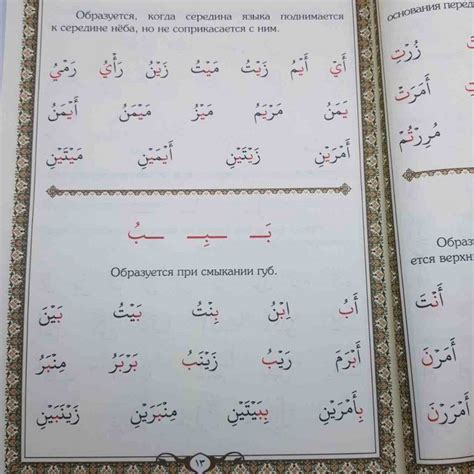 Образуется, когда середина языка поднимается
к середине нёба, но не соприкасается с ним.
أَيْ أَيْمُ زَيْتُ مَيْتُ زَيْنُ رَأْيُ رَمْيُ
يَمَنُ مَرْيَمُ مَيْزُ مَيْمَنُ أَيْمَنُ
أَمْرَيْنِ زَيْتَيْنِ أَيْمَيْنِ مَيْتَيْنِ
بَـ ـبِـ ـبُ
Образуется при смыкании губ.
أَبُ اِبْنُ بِنْتُ بَيْتُ بَيْنَ
أَبْرَمَ رَيْبُ زَيْنَبُ بَرْبَرُ مِنْبَرُ
بِأَمْرَيْنِ بِبَيْتَيْنِ مِنْبَرَيْنِ زَيْنَبَيْنِ
١٣
основания перед
زُرْتِ
أَمَرَتْ
مُرِرْتُمْ
Образ
ется верхн
أَنْتَ
أَمَرْنَ
أَمْرَرْنَ